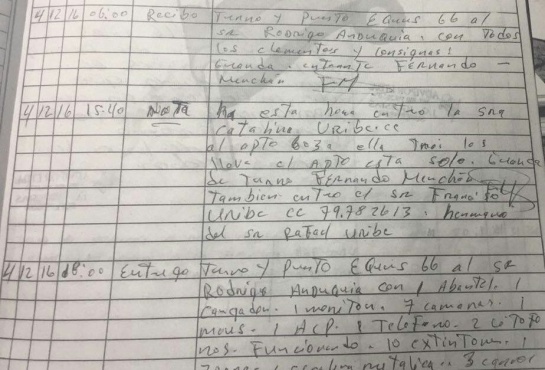 4 12 16 06:00 Recibo Turno y Punto Equus 66 al
sr Rodrigo Anduquia. con Todos
los elementos y consignas!
Guarda. entrante FERNANDO -
Menchan FM
4 12 16 15:40 NOTA ha esta hora entro la sra
Catalina Uribe. cc
al apto 603a ella trai los
llave el APTO esta solo. Guarda
de Turno FERNANDO Menchan
Tambien entro el sr Francisco
Uribe cc 79.782613. hermano
del sr Rafael Uribe
4 12 16 18:00 Entrego Turno y Punto Equus 66 al sr
Rodrigo Anduquia con 1 Abantel. 1
Cargador. 1 monitor. 7 camaras. 1
mous. 1 ACP. 1 Telefono. 2 citofo
nos. Funcionando. 10 extintores. 1
metalica. 3